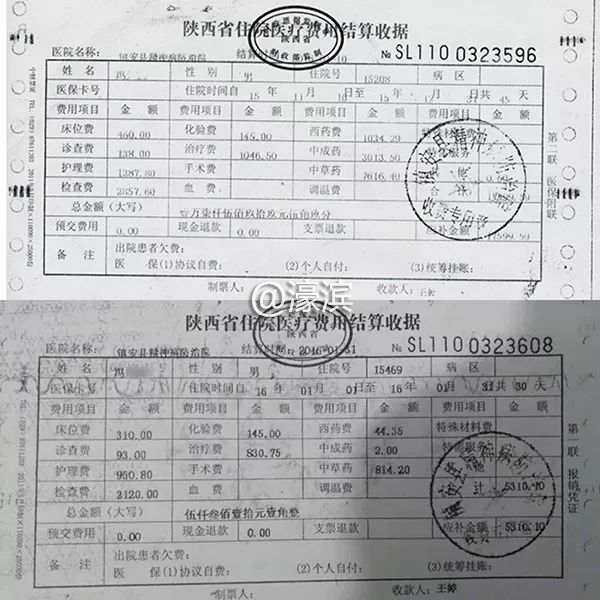 陕西省住院医疗费用结算收据
医院名称: 镇安县精神病防治院 结算 10 № SL110 0323596
姓 名 冯 性 别 男 住院号 15208 病 区
医保卡号 住院时间自 15 年 11 月 至 15 年 月 31 日共 45 天
费用项目 金 额 费用项目 金 额 费用项目 金 额
床位费 460.00 化验费 145.00 西药费 1034.20
诊查费 138.00 治疗费 1046.50 中成药 3013.50
护理费 手术费 中草药 7616.40
检查费 2857.60 血 费 调温费
总金额(大写) 壹万柒仟伍佰玖拾玖元伍角玖分 17599.59
预交费用 0.00 现金退款 0.00 支票退款 应补金额
备 注 出院患者欠费:
医 保(1)协议自费: (2)个人自付: (3)统筹挂账:
制票人: 收款人: 王婷
第二联 医保附联
镇安县精神病防治院
收费专用章
@濠滨
陕西省住院医疗费用结算收据
医院名称: 镇安县精神病防治院 结算 2016-01-31 № SL110 0323608
姓 名 冯 性 别 男 住院号 15469 病 区
医保卡号 住院时间自 16 年 01 月 01 日至 16 年 01 月 31 日共 30 天
费用项目 金 额 费用项目 金 额 费用项目 金 额 费用项目 金 额
床位费 310.00 化验费 145.00 西药费 44.35 特殊材料费
诊查费 93.00 治疗费 830.75 中成药 2.00 特需服务
护理费 950.80 手术费 中草药 814.20
检查费 2120.00 血 费 调温费 计 5310.10
总金额(大写) 伍仟叁佰壹拾元壹角整
预交费用 0.00 现金退款 0.00 支票退款 应补金额 5310.10
备 注 出院患者欠费:
医 保(1)协议自费: (2)个人自付: (3)统筹挂账:
制票人: 收款人: 王婷
第一联 报销凭证